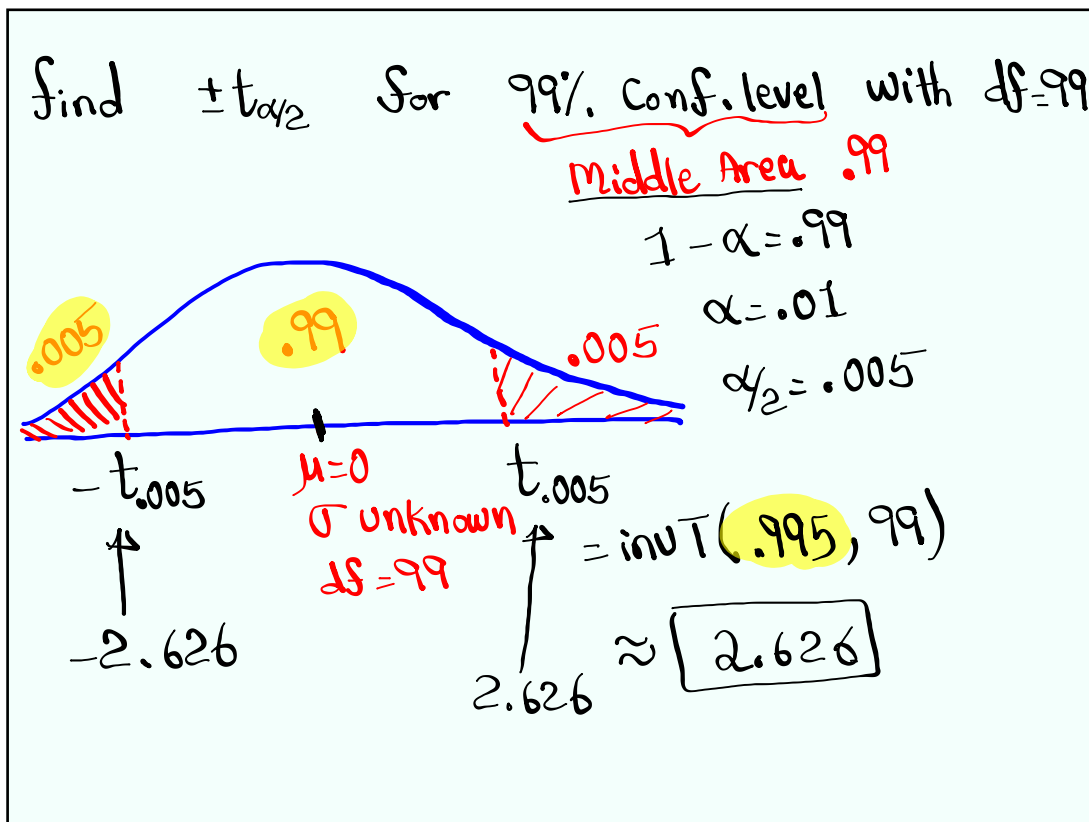 find ±tα/2 for 99%. Conf. level with df=99
Middle Area .99
1 - α = .99
α = .01
α/2 = .005
.005 .99 .005
-t.005 μ=0 t.005
σ unknown
df=99
= invT(.995, 99)
-2.626 2.626 ≈ 2.626